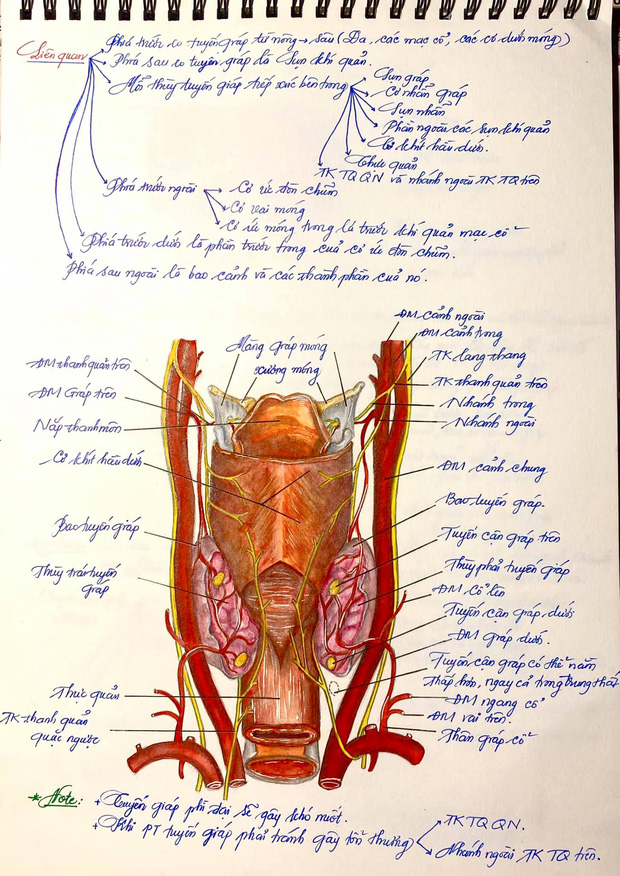 Liên quan
Phía trước có tuyến giáp từ nông → sâu (Da, các mạc cổ, các cơ dưới móng)
Phía sau có tuyến giáp là Sụn khí quản.
Mỗi thùy tuyến giáp tiếp xúc bên trong
Sụn giáp
Cơ nhẫn giáp
Sụn nhẫn
Phần ngoài các sụn khí quản
Cơ khít hầu dưới.
Thực quản
TK TQQN và nhánh ngoài TK TQ trên
Phía trước ngoài
Cơ ức đòn chũm
Cơ vai móng
Cơ ức móng trong lá trước khí quản mạc cổ
Phía trước dưới là phần trước trong của cơ ức đòn chũm.
Phía sau ngoài là bao cảnh và các thành phần của nó.
ĐM cảnh ngoài
ĐM cảnh trong
TK lang thang
TK thanh quản trên
Nhánh trong
Nhánh ngoài
ĐM cảnh chung
Bao tuyến giáp.
Tuyến cận giáp trên
Thùy phải tuyến giáp
ĐM cổ lên
Tuyến cận giáp dưới
ĐM giáp dưới.
Tuyến cận giáp có thể nằm
thấp hơn, ngay cả trong trung thất
ĐM ngang cổ
ĐM vai trên
Thân giáp cổ
Màng giáp móng
xương móng
ĐM thanh quản trên
ĐM Giáp trên
Nắp thanh môn
Cơ khít hầu dưới
Bao tuyến giáp
Thùy trái tuyến
giáp
Thực quản
TK thanh quản
quặt ngược
* Note:
+ Tuyến giáp phì đại sẽ gây khó nuốt.
+ Khi PT tuyến giáp phải tránh gây tổn thương
TK TQQN.
Nhánh ngoài TK TQ trên.